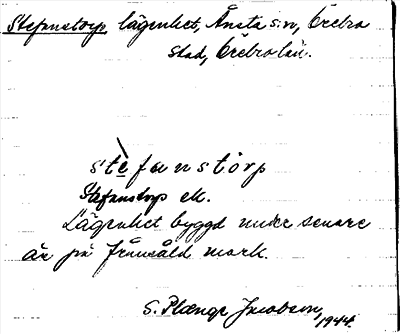 Stefanstorp, lägenhet, Ånsta sn, Örebro
stad, Örebro län.
stèfanstòrp
Stefanstorp ek.
Lägenhet byggd under senare
år på frånsåld mark.
S. Plænge Jacobson,
1944.